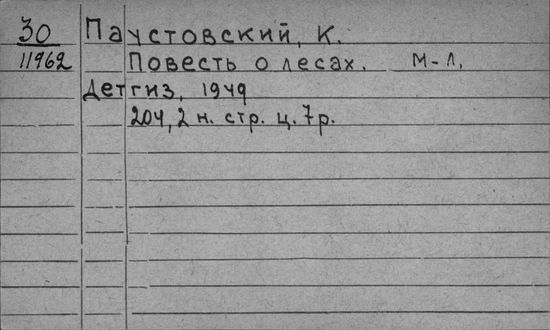 30 Паустовский, К.
11962 Повесть о лесах. М-Л,
Детгиз, 1949
204, 2 н. стр. ц. 7р.